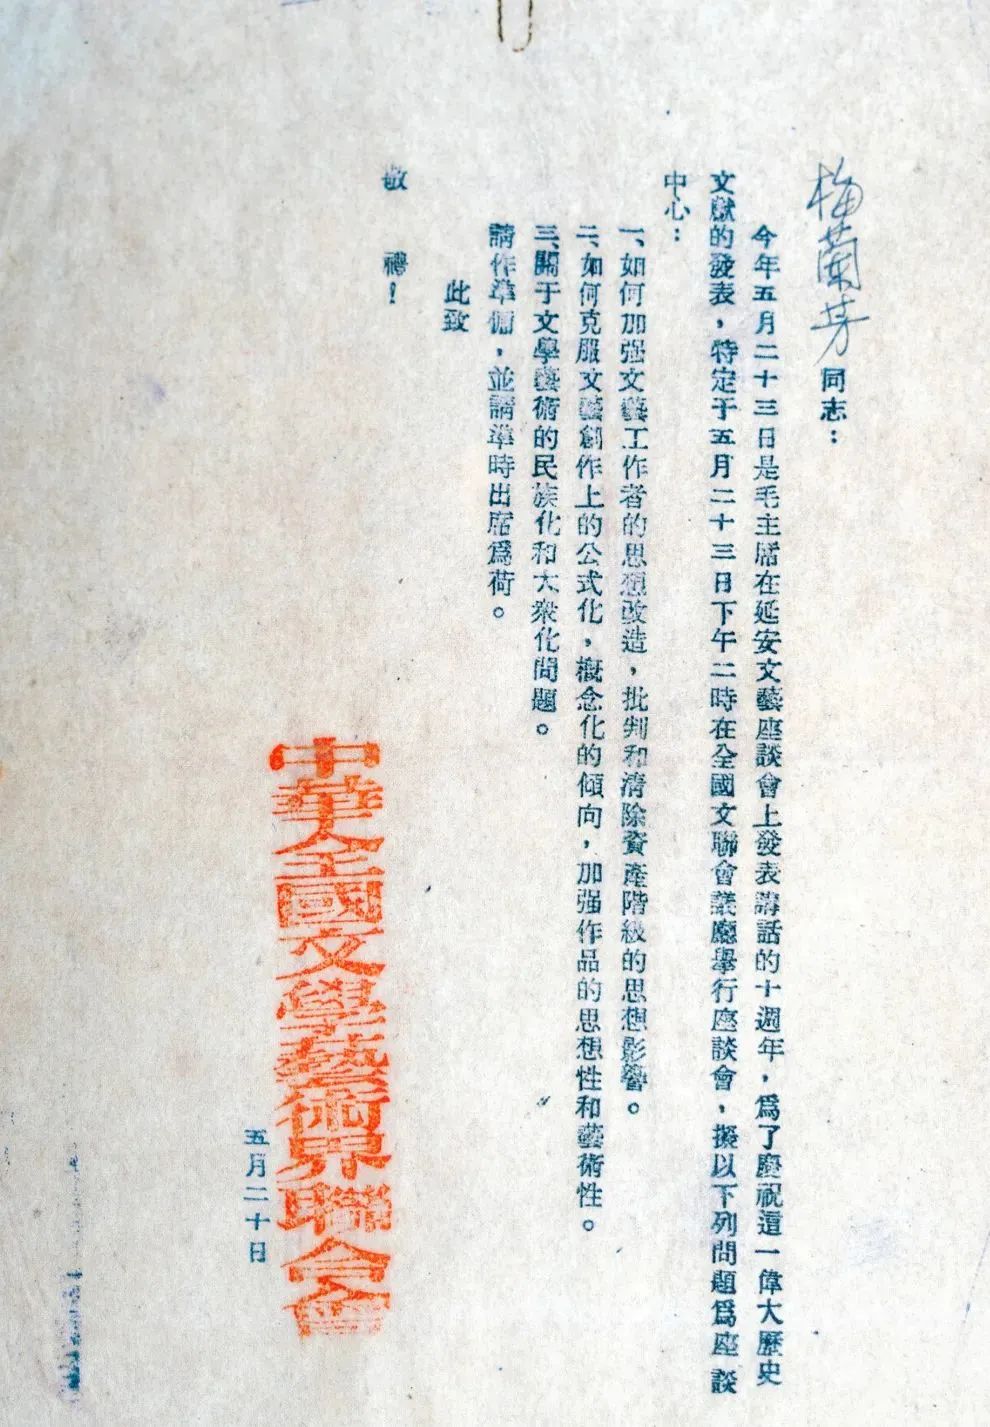 梅蘭芳同志：
今年五月二十三日是毛主席在延安文藝座談會上發表講話的十週年，爲了慶祝這一偉大歷史
文獻的發表，特定于五月二十三日下午二時在全國文聯會議廳舉行座談會，擬以下列問題爲座談
中心：
一、如何加强文藝工作者的思想改造，批判和清除資產階級的思想影響。
二、如何克服文藝創作上的公式化，概念化的傾向，加强作品的思想性和藝術性。
三、關于文學藝術的民族化和大衆化問題。
請作準備，並請準時出席爲荷。
此致
敬禮！
中華全國文學藝術界聯合會
五月二十日